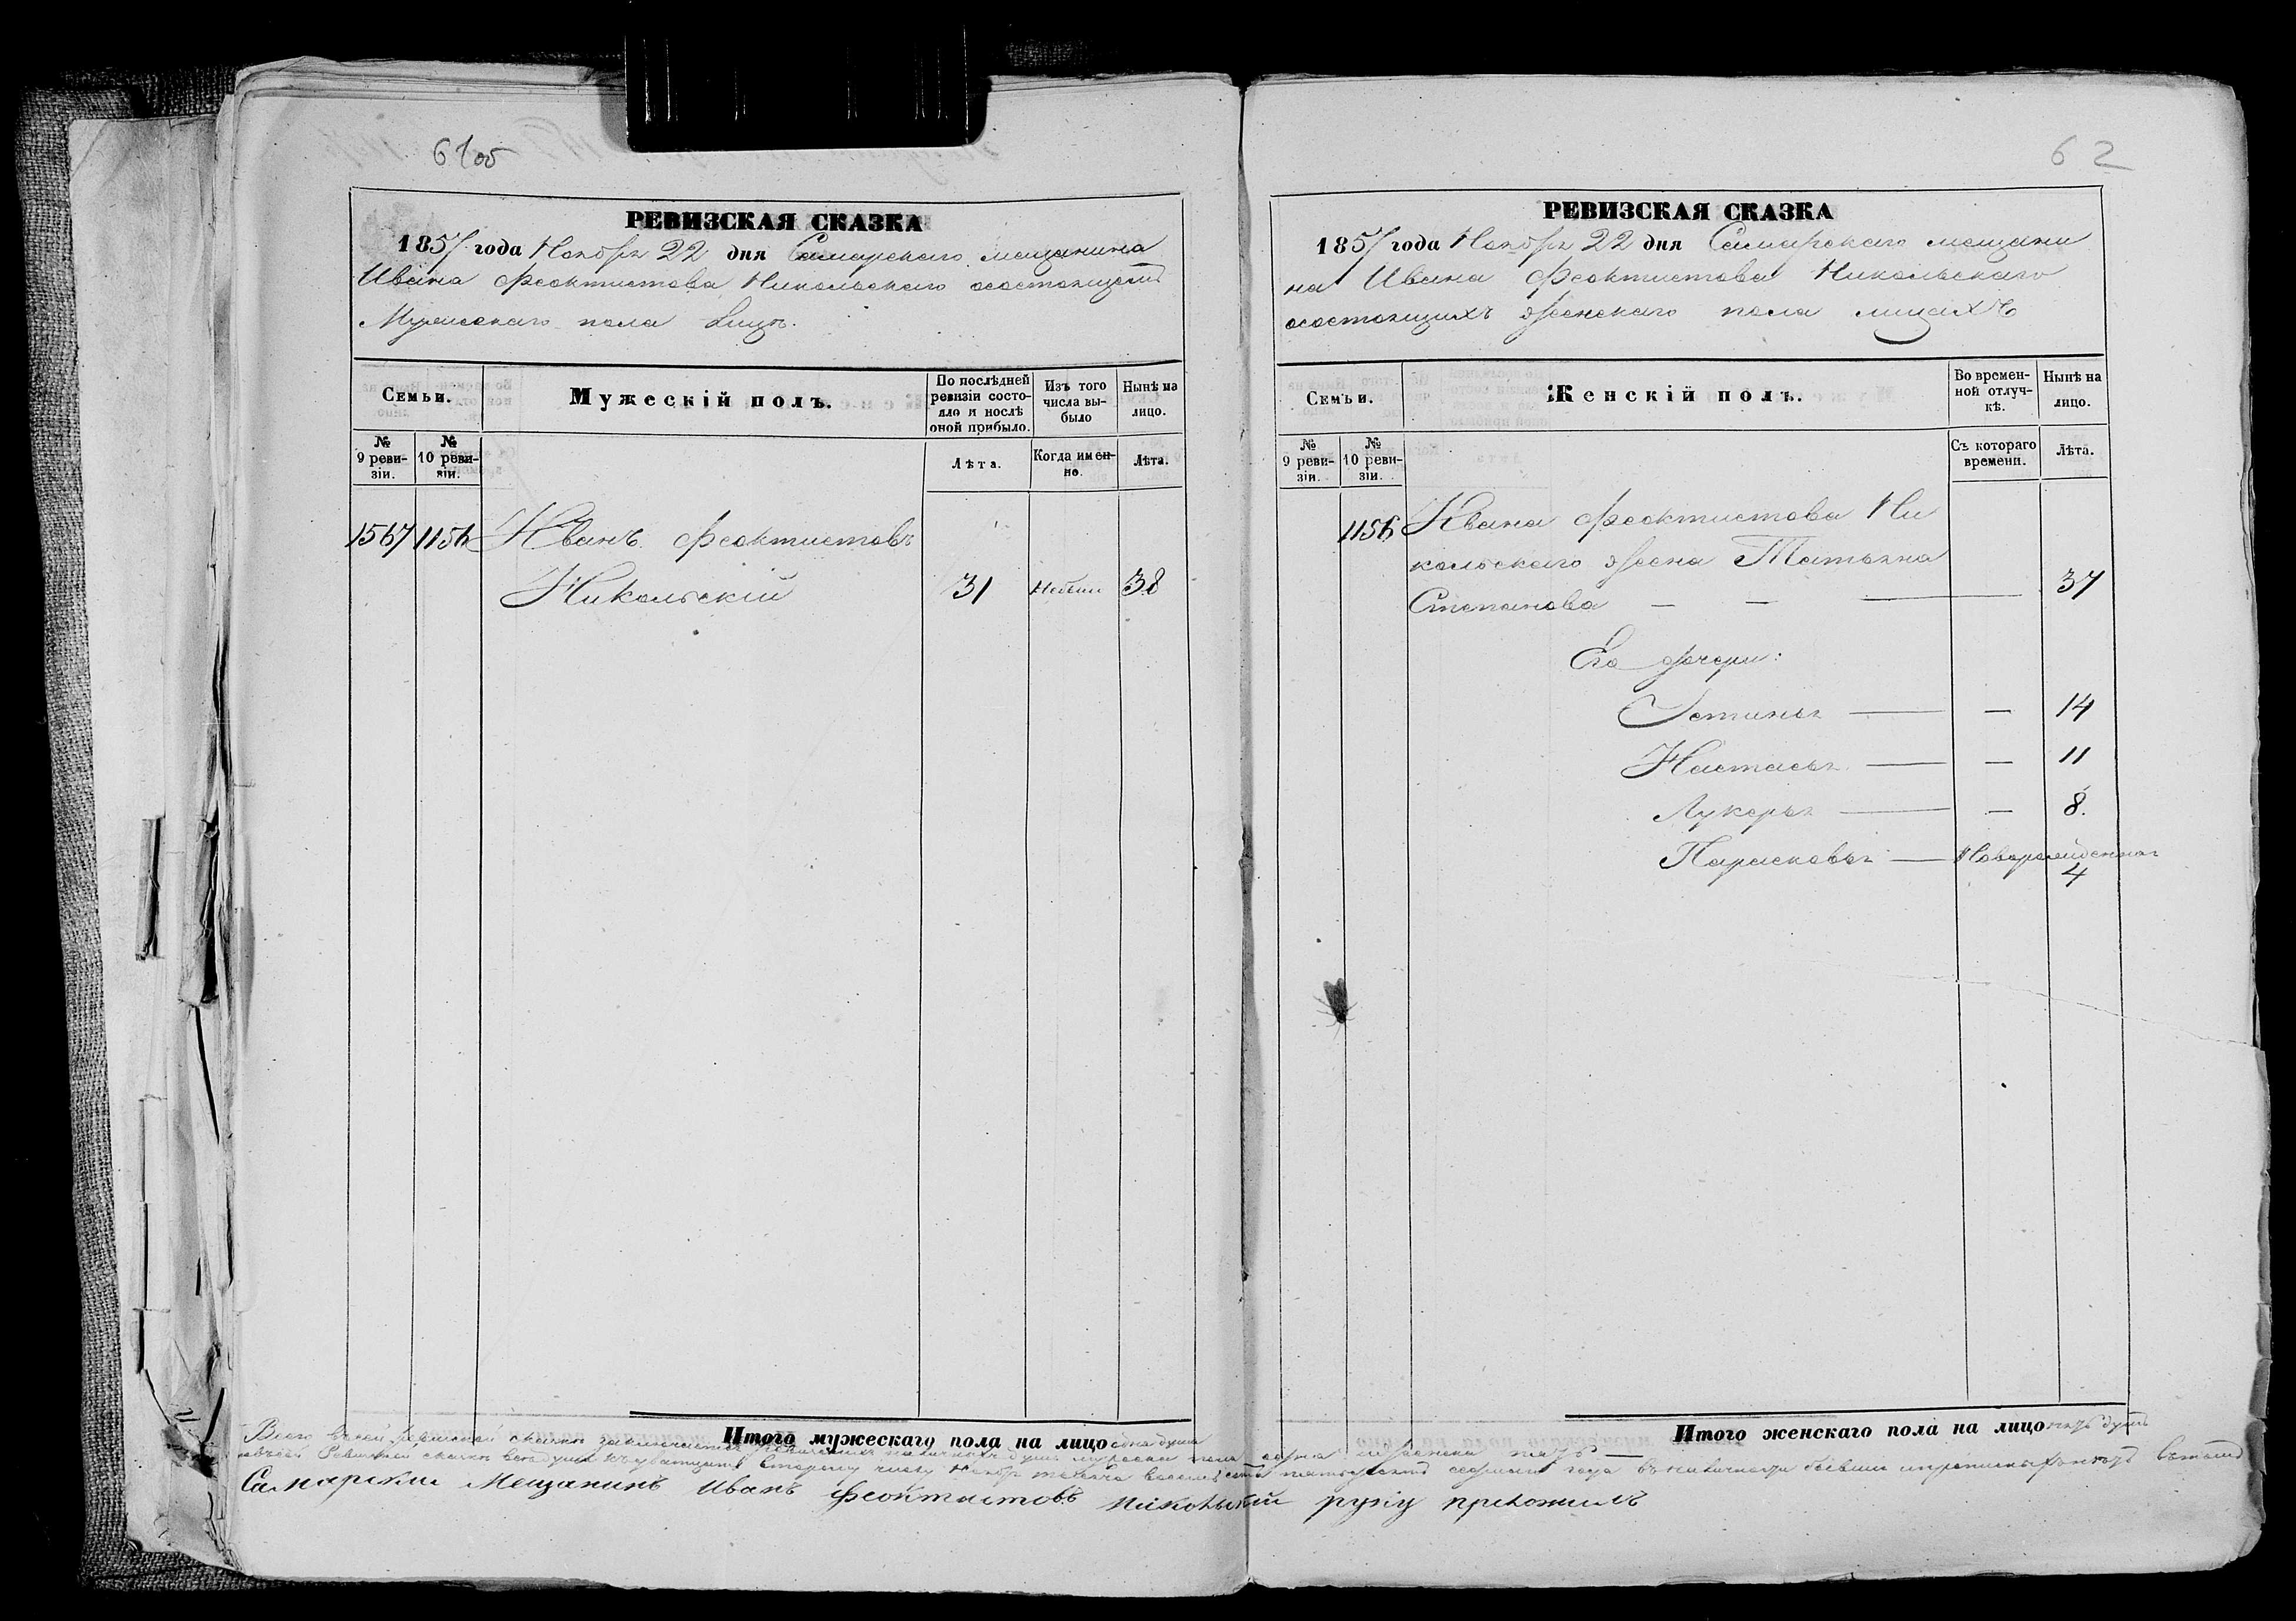 61об
РЕВИЗСКАЯ СКАЗКА
1857 года Ноября 22 дня Самарскаго мещанина
Ивана Феоктистова Никольскаго осостоящемъ
Мужескаго пола Лицъ.
Семьи.
Мужескій полъ.
По послѣдней ревизіи состояло и послѣ оной прибыло.
Изъ того числа выбыло
Нынѣ на лицо.
№ 9 ревизіи.
№ 10 ревизіи.
Лѣта.
Когда именно.
Лѣта.
1567 1156 Иванъ Феоктистовъ
Никольскій 31 38
Итого мужескаго пола на лицо одна душа
62
РЕВИЗСКАЯ СКАЗКА
1857 года Ноября 22 дня Самарскаго мещани
на Ивана Феоктистова Никольскаго
осостоящихъ женскаго пола лицахъ
Семьи.
Женскій полъ.
Во временной отлучкѣ.
Нынѣ на лицо.
№ 9 ревизіи.
№ 10 ревизіи.
Съ котораго времени.
Лѣта.
1156 Ивана Феоктистова Ни
кольскаго жена Татьяна
Степанова — — — 37
Его дочери:
Устинья — — 14
Настасья — — 11
Лукерья — — 8.
Парасковья — Новорожденная
4
Итого женскаго пола на лицо пять душъ
Всего въсей ревизской сказки заключается наличныхъ душъ мужеска пола одна и женска пять —
Самарский Мещанинъ Иванъ Феоктистовъ Никольский руку преложилъ